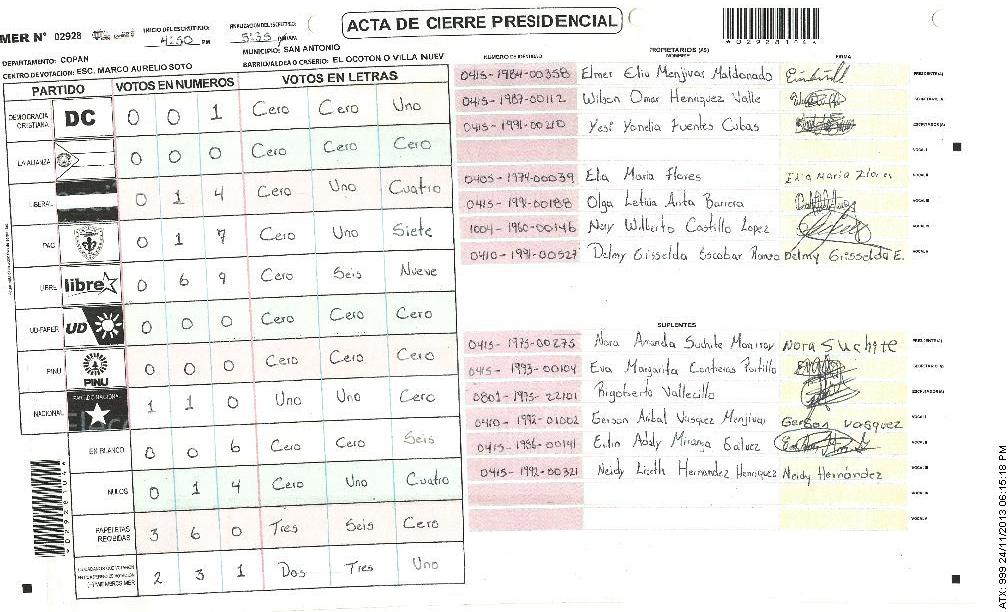 ACTA DE CIERRE PRESIDENCIAL
MER N° 02928
INICIO DEL ESCRUTINIO: 4:50 PM
DEPARTAMENTO: COPAN
MUNICIPIO: SAN ANTONIO
CENTRO DE VOTACION: ESC. MARCO AURELIO SOTO
BARRIO/ALDEA O CASERIO: EL OCOTON O VILLA NUEV
PARTIDO VOTOS EN NUMEROS VOTOS EN LETRAS
DEMOCRACIA CRISTIANA DC 0 0 1 Cero Cero Uno
LA ALIANZA 0 0 0 Cero Cero Cero
LIBERAL 0 1 4 Cero Uno Cuatro
PAC 0 1 7 Cero Uno Siete
LIBRE libre 0 6 9 Cero Seis Nueve
UD-FAPER UD 0 0 0 Cero Cero Cero
PINU PINU 0 0 0 Cero Cero Cero
NACIONAL PARTIDO NACIONAL 1 1 0 Uno Uno Cero
EN BLANCO 0 0 6 Cero Cero Seis
NULOS 0 1 4 Cero Uno Cuatro
PAPELETAS RECIBIDAS 3 6 0 Tres Seis Cero
2 3 1 Dos Tres Uno
PROPIETARIOS (AS)
NUMERO DE IDENTIDAD NOMBRE FIRMA
0415-1984-00358 Elmer Eliu Menjivar Maldonado PRESIDENTE(A)
0415-1987-00112 Wilson Omar Henriquez Valle SECRETARIO(A)
0415-1991-00210 Yesi Yonelia Fuentes Cubas ESCRUTADOR(A)
VOCAL I
0405-1974-00039 Elia Maria Flores Elia Maria Flores VOCAL II
0415-1991-00188 Olga Leticia Arita Barrera VOCAL III
1004-1960-00146 Nery Wilberto Castillo Lopez
0410-1991-00527 Delmy Grisselda Escobar Delmy Grisselda E. VOCAL V
SUPLENTES
0415-1975-00275 Nora Amanda Suchite Monrroy Nora Suchite PRESIDENTE(A)
0415-1993-00104 Eva Margarita Contreras Portillo SECRETARIO(A)
0801-1975-22101 Rigoberto Vallecillo ESCRUTADOR(A)
0410-1992-01002 Gerson Anibal Vasquez Menjivar Gerson Vasquez VOCAL I
0415-1986-00141 Edin Adaly Miranda Galvez VOCAL II
0415-1992-00321 Neidy Lizeth Hernandez Henriquez Neidy Hernández VOCAL III
VOCAL IV
VOCAL V
ATX: 999 24/11/2013 06:15:18 PM